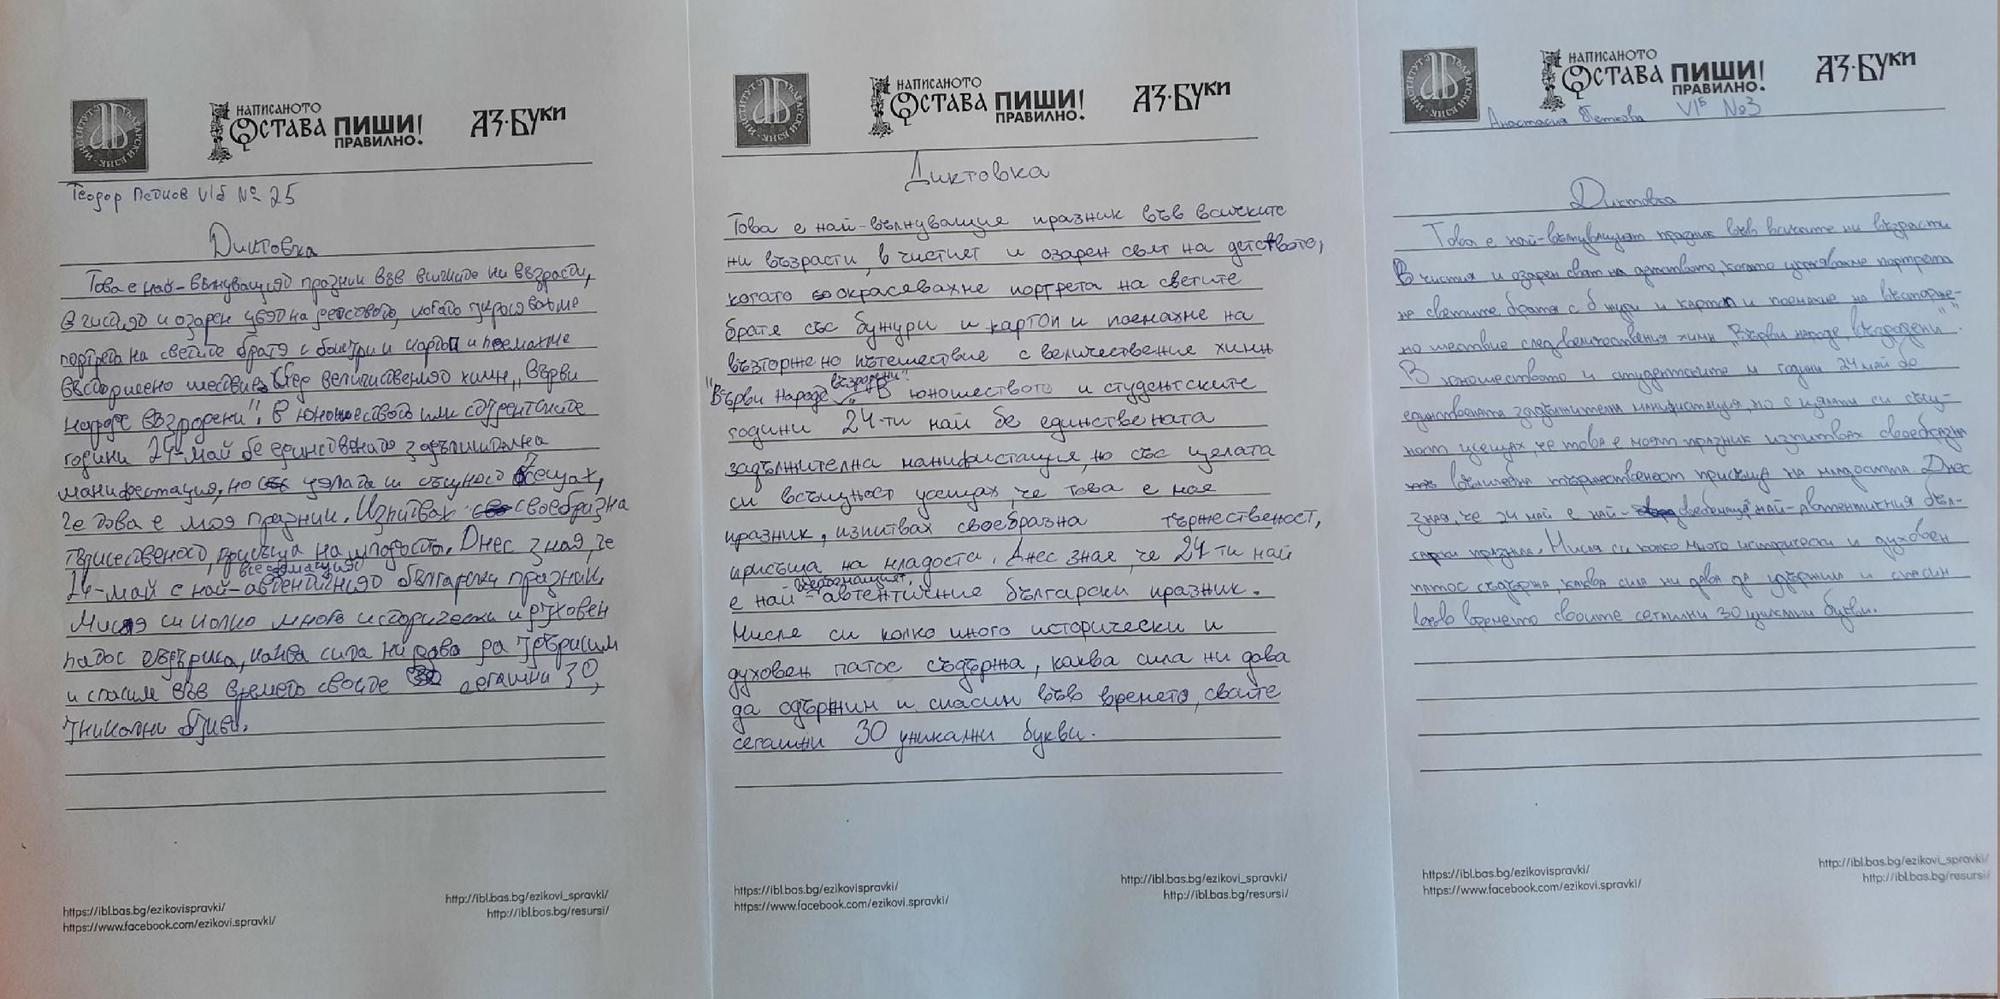 НАПИСАНОТО
ОСТАВА ПИШИ!
ПРАВИЛНО.
АЗ·БУКИ
Теодор Петков VIб № 25
Диктовка
Това е най-вълнуващия празник във всичките ни възрасти,
в чистия и озарен на детсвото, когато
портрета на светите братя с и и поемахме
шествие след химн „Върви
народе възродени". В юношеството или студентските
години 24-май бе единствената задължителна
манифестация, но цялата си
че това е моя празник. Изпитвах своебразна
присъща на младоста. Днес зная, че
24-май е най-автентичния български празник.
Мисля си колко много исторически и духовен
патос каква сила ни дава да
и спасим във времето своите сегашни 30
уникални букви.
https://ibl.bas.bg/ezikovispravki/
https://www.facebook.com/ezikovi.spravki/
http://ibl.bas.bg/ezikovi_spravki/
http://ibl.bas.bg/resursi/
НАПИСАНОТО
ОСТАВА ПИШИ!
ПРАВИЛНО.
АЗ·БУКИ
Диктовка
Това е най-вълнуващия празник във всичките
ни възрасти, в чистият и озарен свят на детството,
когато окрасявахме портрета на светите
братя със бужури и картоп и поемахме на
възторжено пътешествие с величествения химн
"Върви Народе възродени". В юношеството и студентските
години 24-ти май бе единствената
задължителна манифистация, но със цялата
си всъщност усещах, че това е моя
празник, изпитвах своебразна тържественост,
присъща на младоста. Днес зная, че 24-ти май
е най-автентичния български празник.
Мисля си колко много исторически и
духовен патос съдържа, каква сила ни дава
да одържим и спасим във времето, своите
сегашни 30 уникални букви.
https://ibl.bas.bg/ezikovispravki/
https://www.facebook.com/ezikovi.spravki/
http://ibl.bas.bg/ezikovi_spravki/
http://ibl.bas.bg/resursi/
ИНСТИТУТ ЗА БЪЛГАРСКИ ЕЗИК
НАПИСАНОТО
ОСТАВА ПИШИ!
ПРАВИЛНО.
АЗ·БУКИ
Анастасия Петкова VIБ №3
Диктовка
Това е най-вълнуващият празник във всичките ни възрасти
В чистия и озарен свят на детството, когато портрета
на светите братя с и картоп и поемахме на възторже-
но шествие след величествения химн „Върви народе, възродени".
В юношеството и студентските и години 24 май бе
единствената задължителна манифистация, но с цялата си същ-
ност усещах, че това е моят празник изпитвах своеобразна
тържественост присъща на младостта. Днес
зная, че 24 май е най- най-автентичния бъл-
гарски празник. Мисля си колко много исторически и духовен
патос съдържа, каква сила ни дава да удържим и спасим
във времето своите 30 уникални букви.
https://ibl.bas.bg/ezikovispravki/
https://www.facebook.com/ezikovi.spravki/
http://ibl.bas.bg/ezikovi_spravki/
http://ibl.bas.bg/resursi/